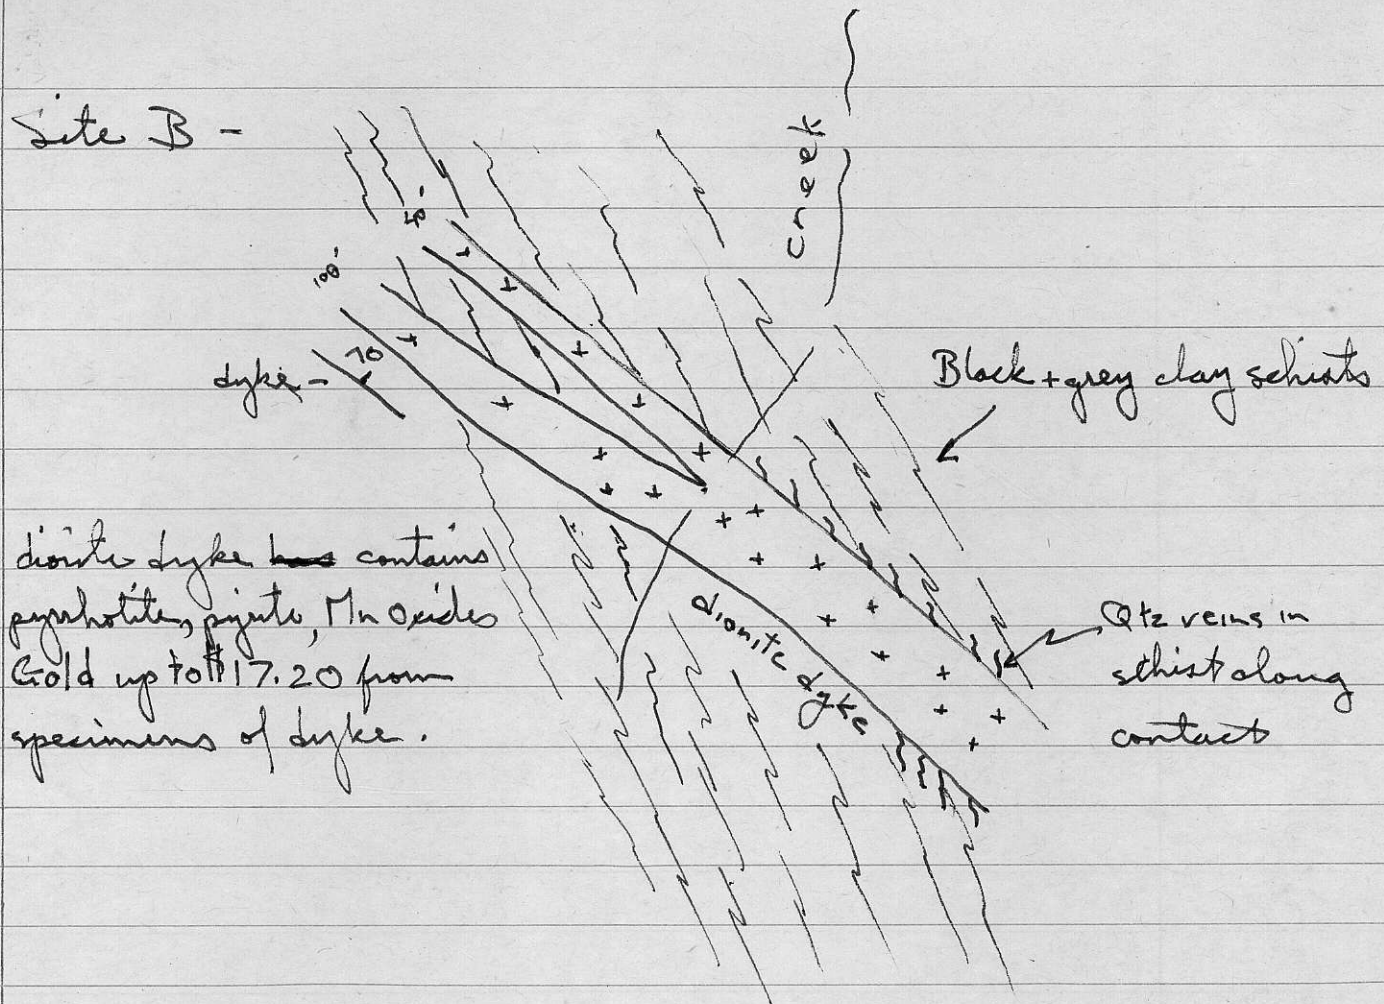 Site B -
creek
100'
dyke -
70
Black + grey clay schists
diorite dyke has contains
pyrrhotite, pyrite, Mn Oxides
Gold up to $17.20 from
specimens of dyke.
diorite dyke
Qtz veins in
schist along
contact